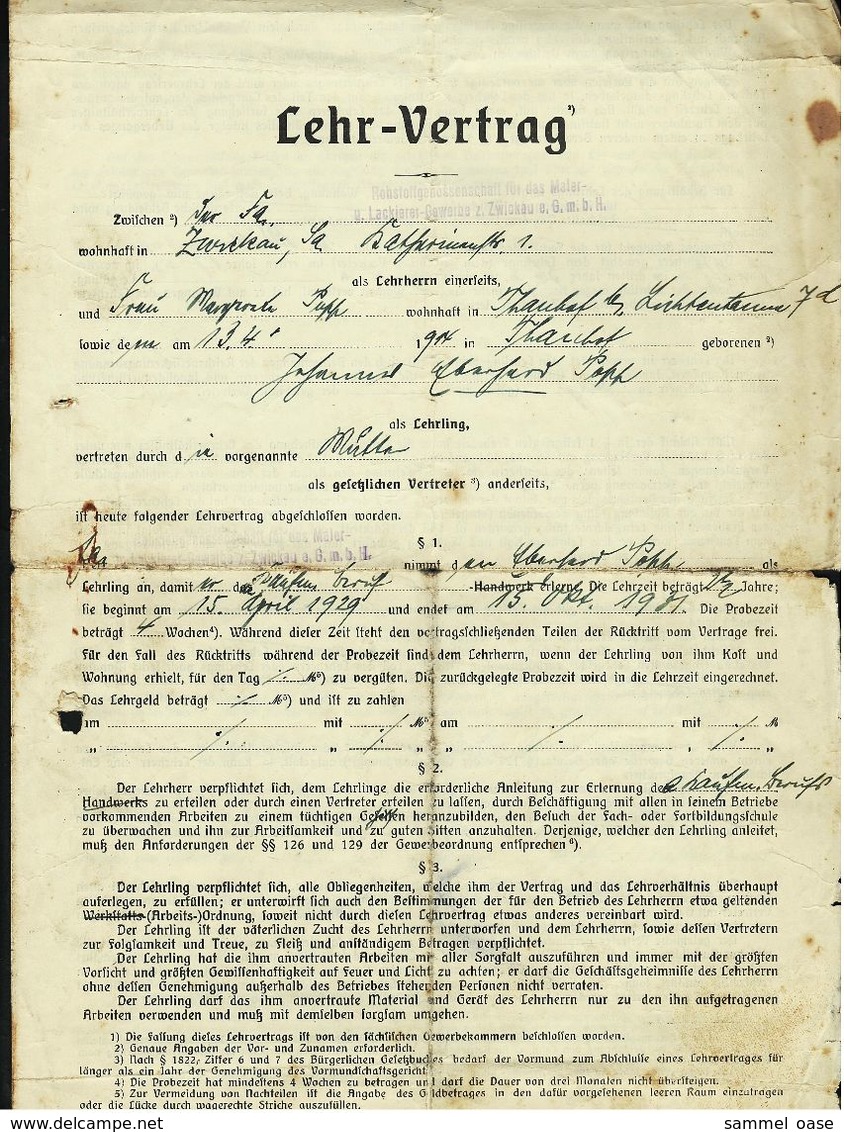 Lehr-Vertrag¹)
Rohstoffgenossenschaft für das Maler-
u. Lackierer-Gewerbe z. Zwickau e. G. m. b. H.
Zwischen ²) Der Fa.
wohnhaft in Zwickau, Sa Katharinenstr. 1.
als Lehrherrn einerseits,
und Frau Margarete Popp wohnhaft in Thanhof b. Lichtentanne 7d
sowie dem am 13.4. 1914 in Thanhof geborenen ²)
Johannes Eberhard Popp
als Lehrling,
vertreten durch die vorgenannte Mutter
als gesetzlichen Vertreter ³) anderseits,
ist heute folgender Lehrvertrag abgeschlossen worden.
§ 1.
Fa. für das Maler-
z. Zwickau e. G. m. b. H. nimmt den Eberhard Popp als
Lehrling an, damit er den Kaufm. Beruf Handwerk erlerne. Die Lehrzeit beträgt 2½ Jahre;
sie beginnt am 15. April 1929 und endet am 15. Okt. 1931. Die Probezeit
beträgt 4 Wochen⁴). Während dieser Zeit steht den vertragschließenden Teilen der Rücktritt vom Vertrage frei.
Für den Fall des Rücktritts während der Probezeit sind dem Lehrherrn, wenn der Lehrling von ihm Kost und
Wohnung erhielt, für den Tag ./. M⁵) zu vergüten. Die zurückgelegte Probezeit wird in die Lehrzeit eingerechnet.
Das Lehrgeld beträgt ./. M⁵) und ist zu zahlen
am ./. mit ./. M⁵ am ./. mit ./. M
„ ./. „ ./. „ „ ./. „ ./. „
§ 2.
Der Lehrherr verpflichtet sich, dem Lehrlinge die erforderliche Anleitung zur Erlernung des Kaufm. Berufs
Handwerks zu erteilen oder durch einen Vertreter erteilen zu lassen, durch Beschäftigung mit allen in seinem Betriebe
vorkommenden Arbeiten zu einem tüchtigen Gehilfen heranzubilden, den Besuch der Fach- oder Fortbildungsschule
zu überwachen und ihn zur Arbeitsamkeit und zu guten Sitten anzuhalten. Derjenige, welcher den Lehrling anleitet,
muß den Anforderungen der §§ 126 und 129 der Gewerbeordnung entsprechen⁶).
§ 3.
Der Lehrling verpflichtet sich, alle Obliegenheiten, welche ihm der Vertrag und das Lehrverhältnis überhaupt
auferlegen, zu erfüllen; er unterwirft sich auch den Bestimmungen der für den Betrieb des Lehrherrn etwa geltenden
Werkstatts-(Arbeits-)Ordnung, soweit nicht durch diesen Lehrvertrag etwas anderes vereinbart wird.
Der Lehrling ist der väterlichen Zucht des Lehrherrn unterworfen und dem Lehrherrn, sowie dessen Vertretern
zur Folgsamkeit und Treue, zu Fleiß und anständigem Betragen verpflichtet.
Der Lehrling hat die ihm anvertrauten Arbeiten mit aller Sorgfalt auszuführen und immer mit der größten
Vorsicht und größten Gewissenhaftigkeit auf Feuer und Licht zu achten; er darf die Geschäftsgeheimnisse des Lehrherrn
ohne dessen Genehmigung außerhalb des Betriebes stehenden Personen nicht verraten.
Der Lehrling darf das ihm anvertraute Material und Gerät des Lehrherrn nur zu den ihm aufgetragenen
Arbeiten verwenden und muß mit demselben sorgsam umgehen.
1) Die Fassung dieses Lehrvertrags ist von den sächsischen Gewerbekammern beschlossen worden.
2) Genaue Angaben der Vor- und Zunamen erforderlich.
3) Nach § 1822, Ziffer 6 und 7 des Bürgerlichen Gesetzbuches bedarf der Vormund zum Abschlusse eines Lehrvertrages für
länger als ein Jahr der Genehmigung des Vormundschaftsgericht
4) Die Probezeit hat mindestens 4 Wochen zu betragen und darf die Dauer von drei Monaten nicht übersteigen.
5) Zur Vermeidung von Nachteilen ist die Angabe des Geldbetrages in den dafür vorgesehenen leeren Raum einzutragen
oder die Lücke durch wagerechte Striche auszufüllen.
www.delcampe.net
sammel_oase